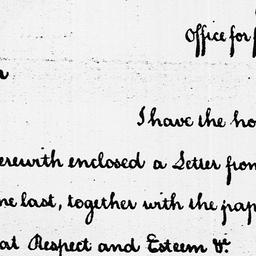 Office for
I have the ho
erewith enclosed a Letter from
ne last, together with the pap
at Respect and Esteem &c.